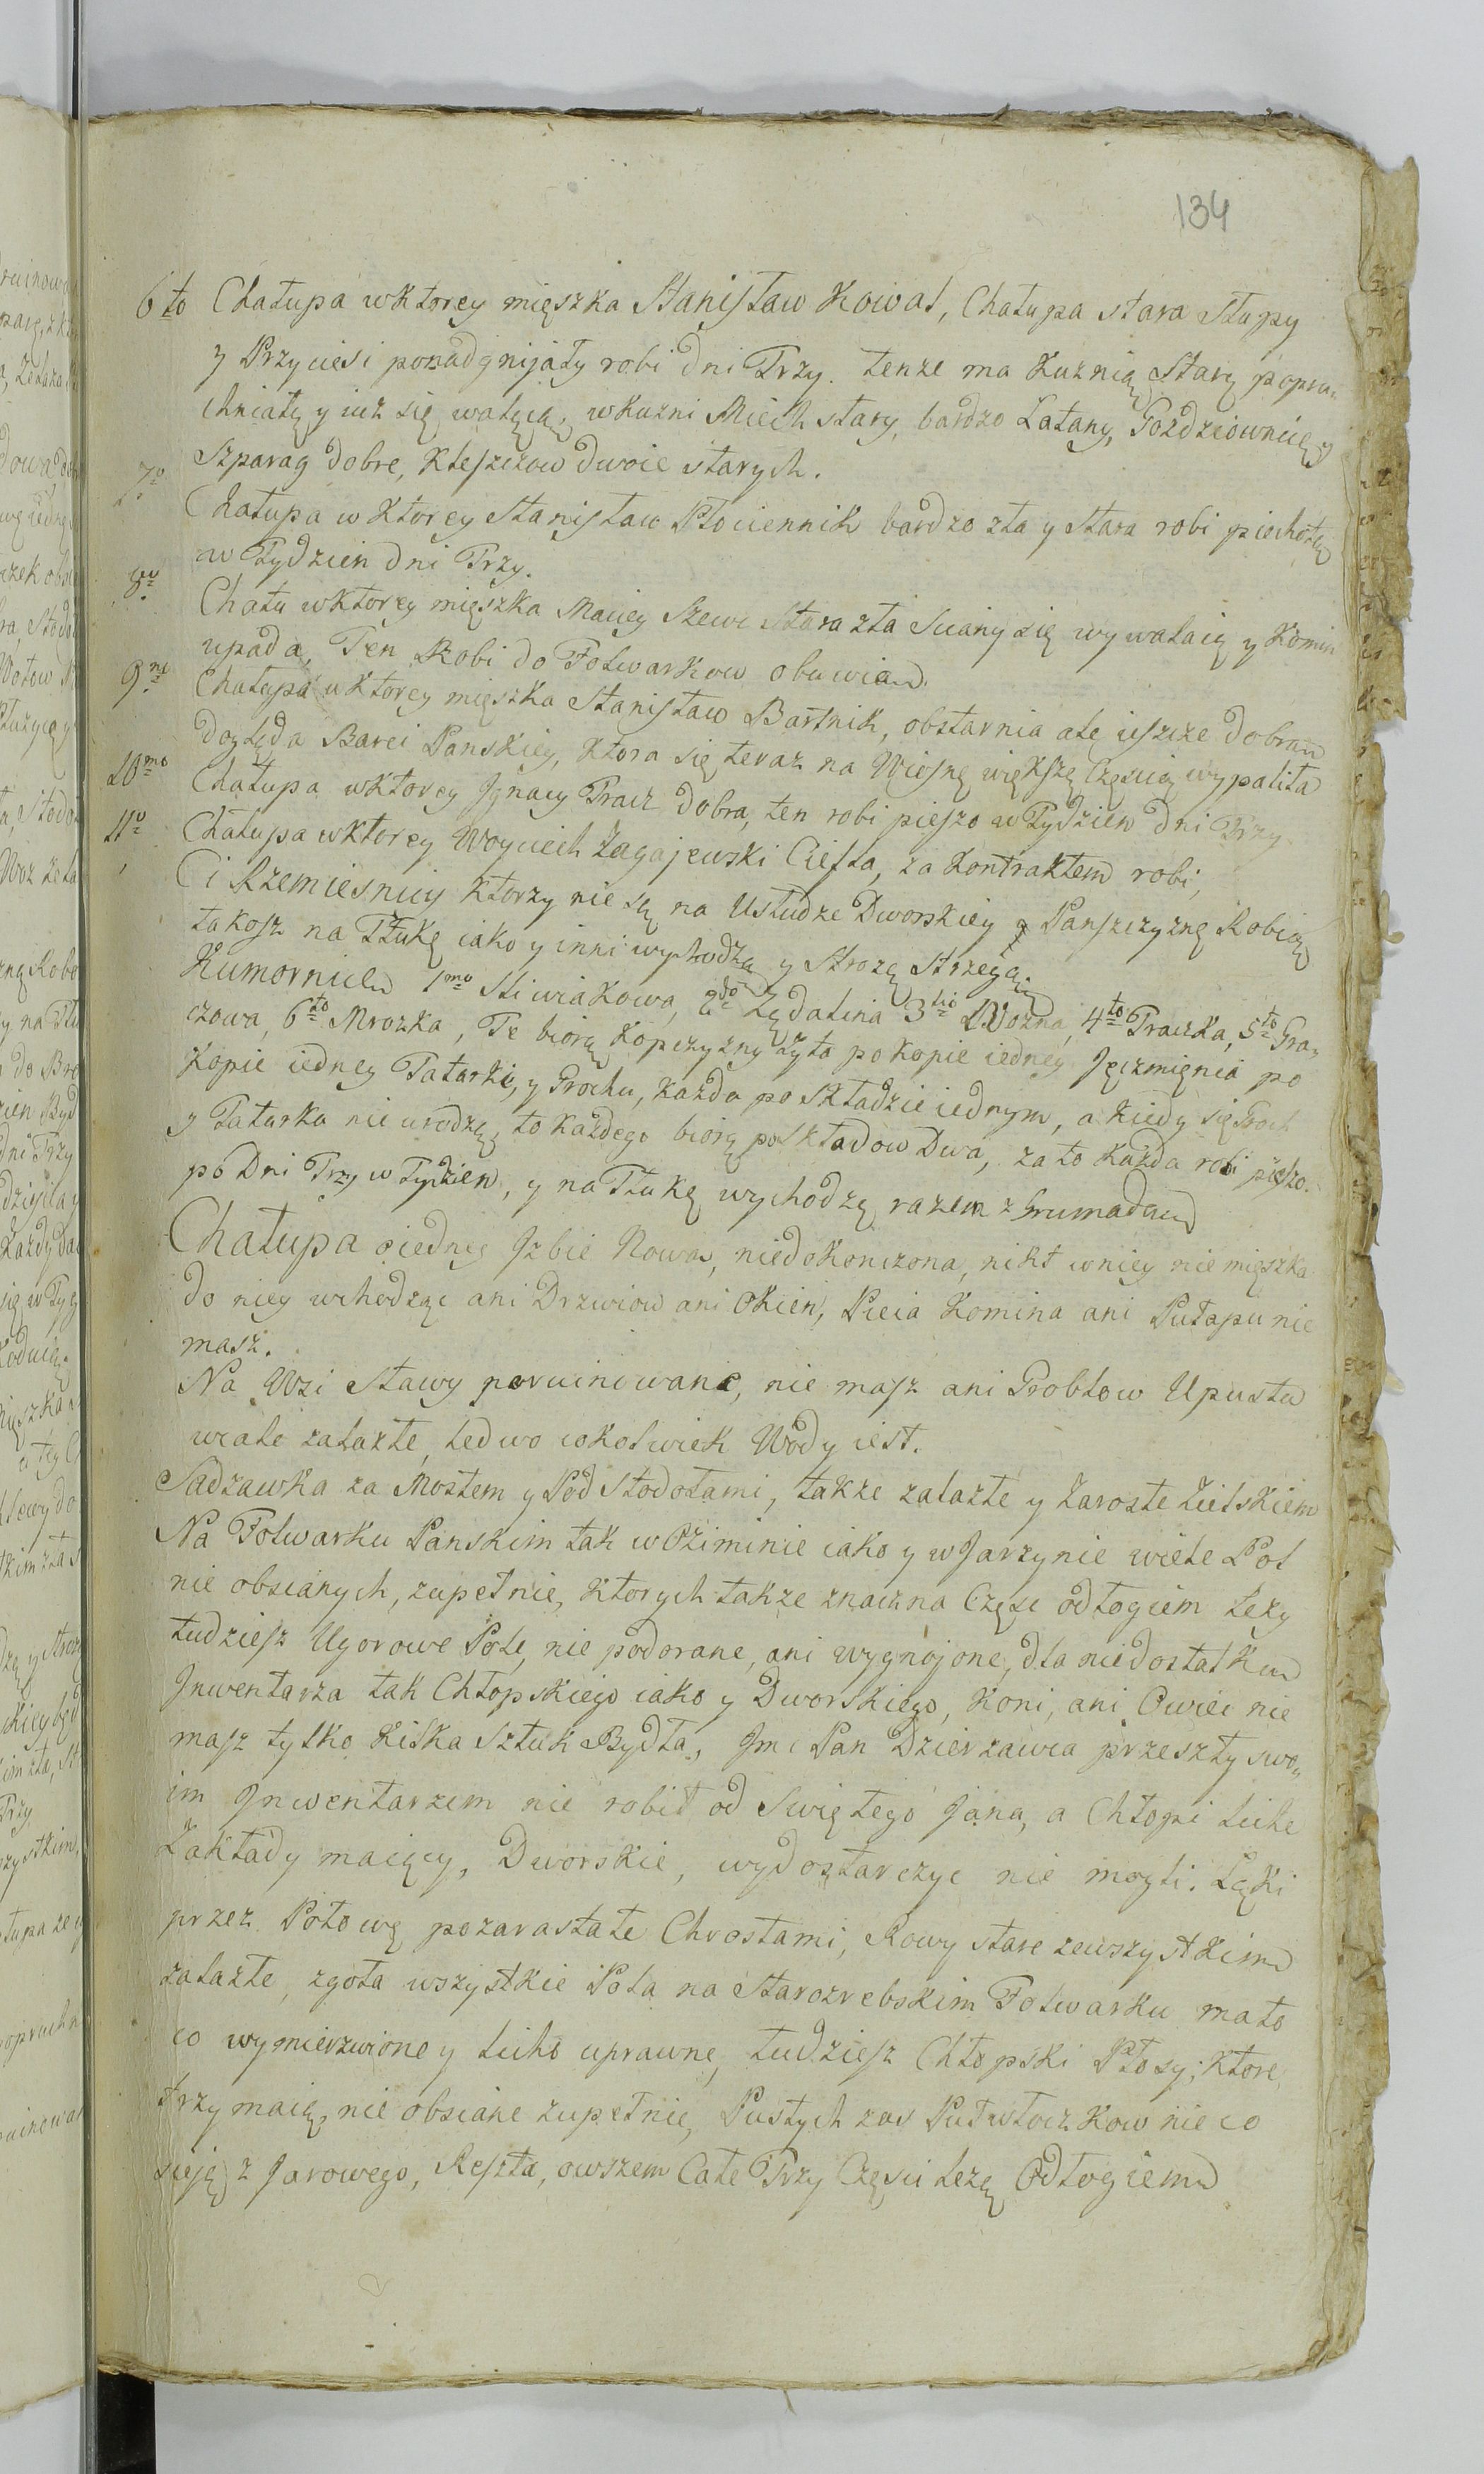 134
6to Chałupa w ktorey mięszka Stanisław Kowal, Chałupa stara słupy
y Przyciesi ponadgnijały robi dni Trzy. tenze ma Kuznią starą popru„
chniałą y iuż się walącą, w kuzni Miech stary, bardzo Łatany, Gozdziownicę y
Szparag dobre, Kleszczow dwoie starych.
7o Chałupa w Ktorey Stanisław Płociennik bardzo zła y stara robi piechotą
w Tydzien dni Trzy.
8vo Chału w ktorey mięszka Maciey Szewc stara zła Sciany się wywalaią y Komin
upada, Ten Robi do Folwarkow obuwia.
9no Chałupa w Ktorey mięszka Stanisław Bartnik, obstarnia ale ieszcze dobra
doględa Barci Panskiey, Ktora się teraz na Wiosnę większą Częscią wypaliła
10mo Chałupa w ktorey Jgnacy Tracz dobra, ten robi pieszo w Tydzien dni Trzy.
11o Chałupa w ktorey Woyciech Zagajewski Ciesla, za Kontraktem robi,
Ci Rzemiesnicy Ktorzy nie są na Usłudze Dworskiey y Panszczyznę Robią
takosz na Tłukę iako y inni wychodzą y Strozą Strzegą.
Kumornice 1mo Sliwiakowa, 2do Zędalina 3tio Wozna, 4to Traczka, 5to Gra„
czowa, 6to Mrozka, Te biorą Kopczyzny żyto po kopie iedney Jęczmięnia po
Kopie iedney Tatarki, y Grochu, każda po Składzie iednym, a kiedy się Groch
y Tatarka nie urodzą, to każdego biorą po Składow Dwa, za to Każda robi pieszo.
po Dni Trzy w Tydzien, y na Tłukę wychodzą razem z Grumadą
Chałupa o iedney Jzbie Nowa, niedokonczona, nikt w niey nie mięszka
do niey wchodząc ani Drzwiow ani Okien, Pieca Komina ani Pułapu nie
masz.
Na Wsi Stawy poruinowane, nie masz ani Groblow Upusta
wcale zalazłe, ledwo cokolwiek Wody iest.
Sadzawka za Mostem y Pod Stodołami, także zalazłe y Zarosłe Zielskiem
Na Folwarku Panskim tak w Oziminie iako y w Jarzynie wiele Pol
nie obsianych, zupełnie, Ktorych także znaczna Częsc odłogiem lezy
tudziesz Ugorowe Pole nie podorane, ani wygnojone, dla niedostatku
Jnwentarza tak Chłopskiego iako y Dworskiego, Koni, ani Owiec nie
masz tylko Kilka Sztuk Bydła, Jmc Pan Dzierzawca przeszły swo„
im Jnwentarzem nie robił od Swiętego Jana, a Chłopi liche
Zakłady maiący, Dworskie, wydostarczyc nie mogli. Łąki
przez Połowę pozarastałe Chrostami, Rowy stare zewszystkim
zalazłe, zgoła wszystkie Pola na Starozrebskim Folwarku mało
co wymierzwione y licho uprawne, tudziesz Chłopski Płosy; Ktore
trzymaią, nie obsiane zupełnie, Pustych zas Pułwłoczkow nieco
sieją z Jarowego, Reszta, owszem Całe Trzy Częsci lezą Odłogiem